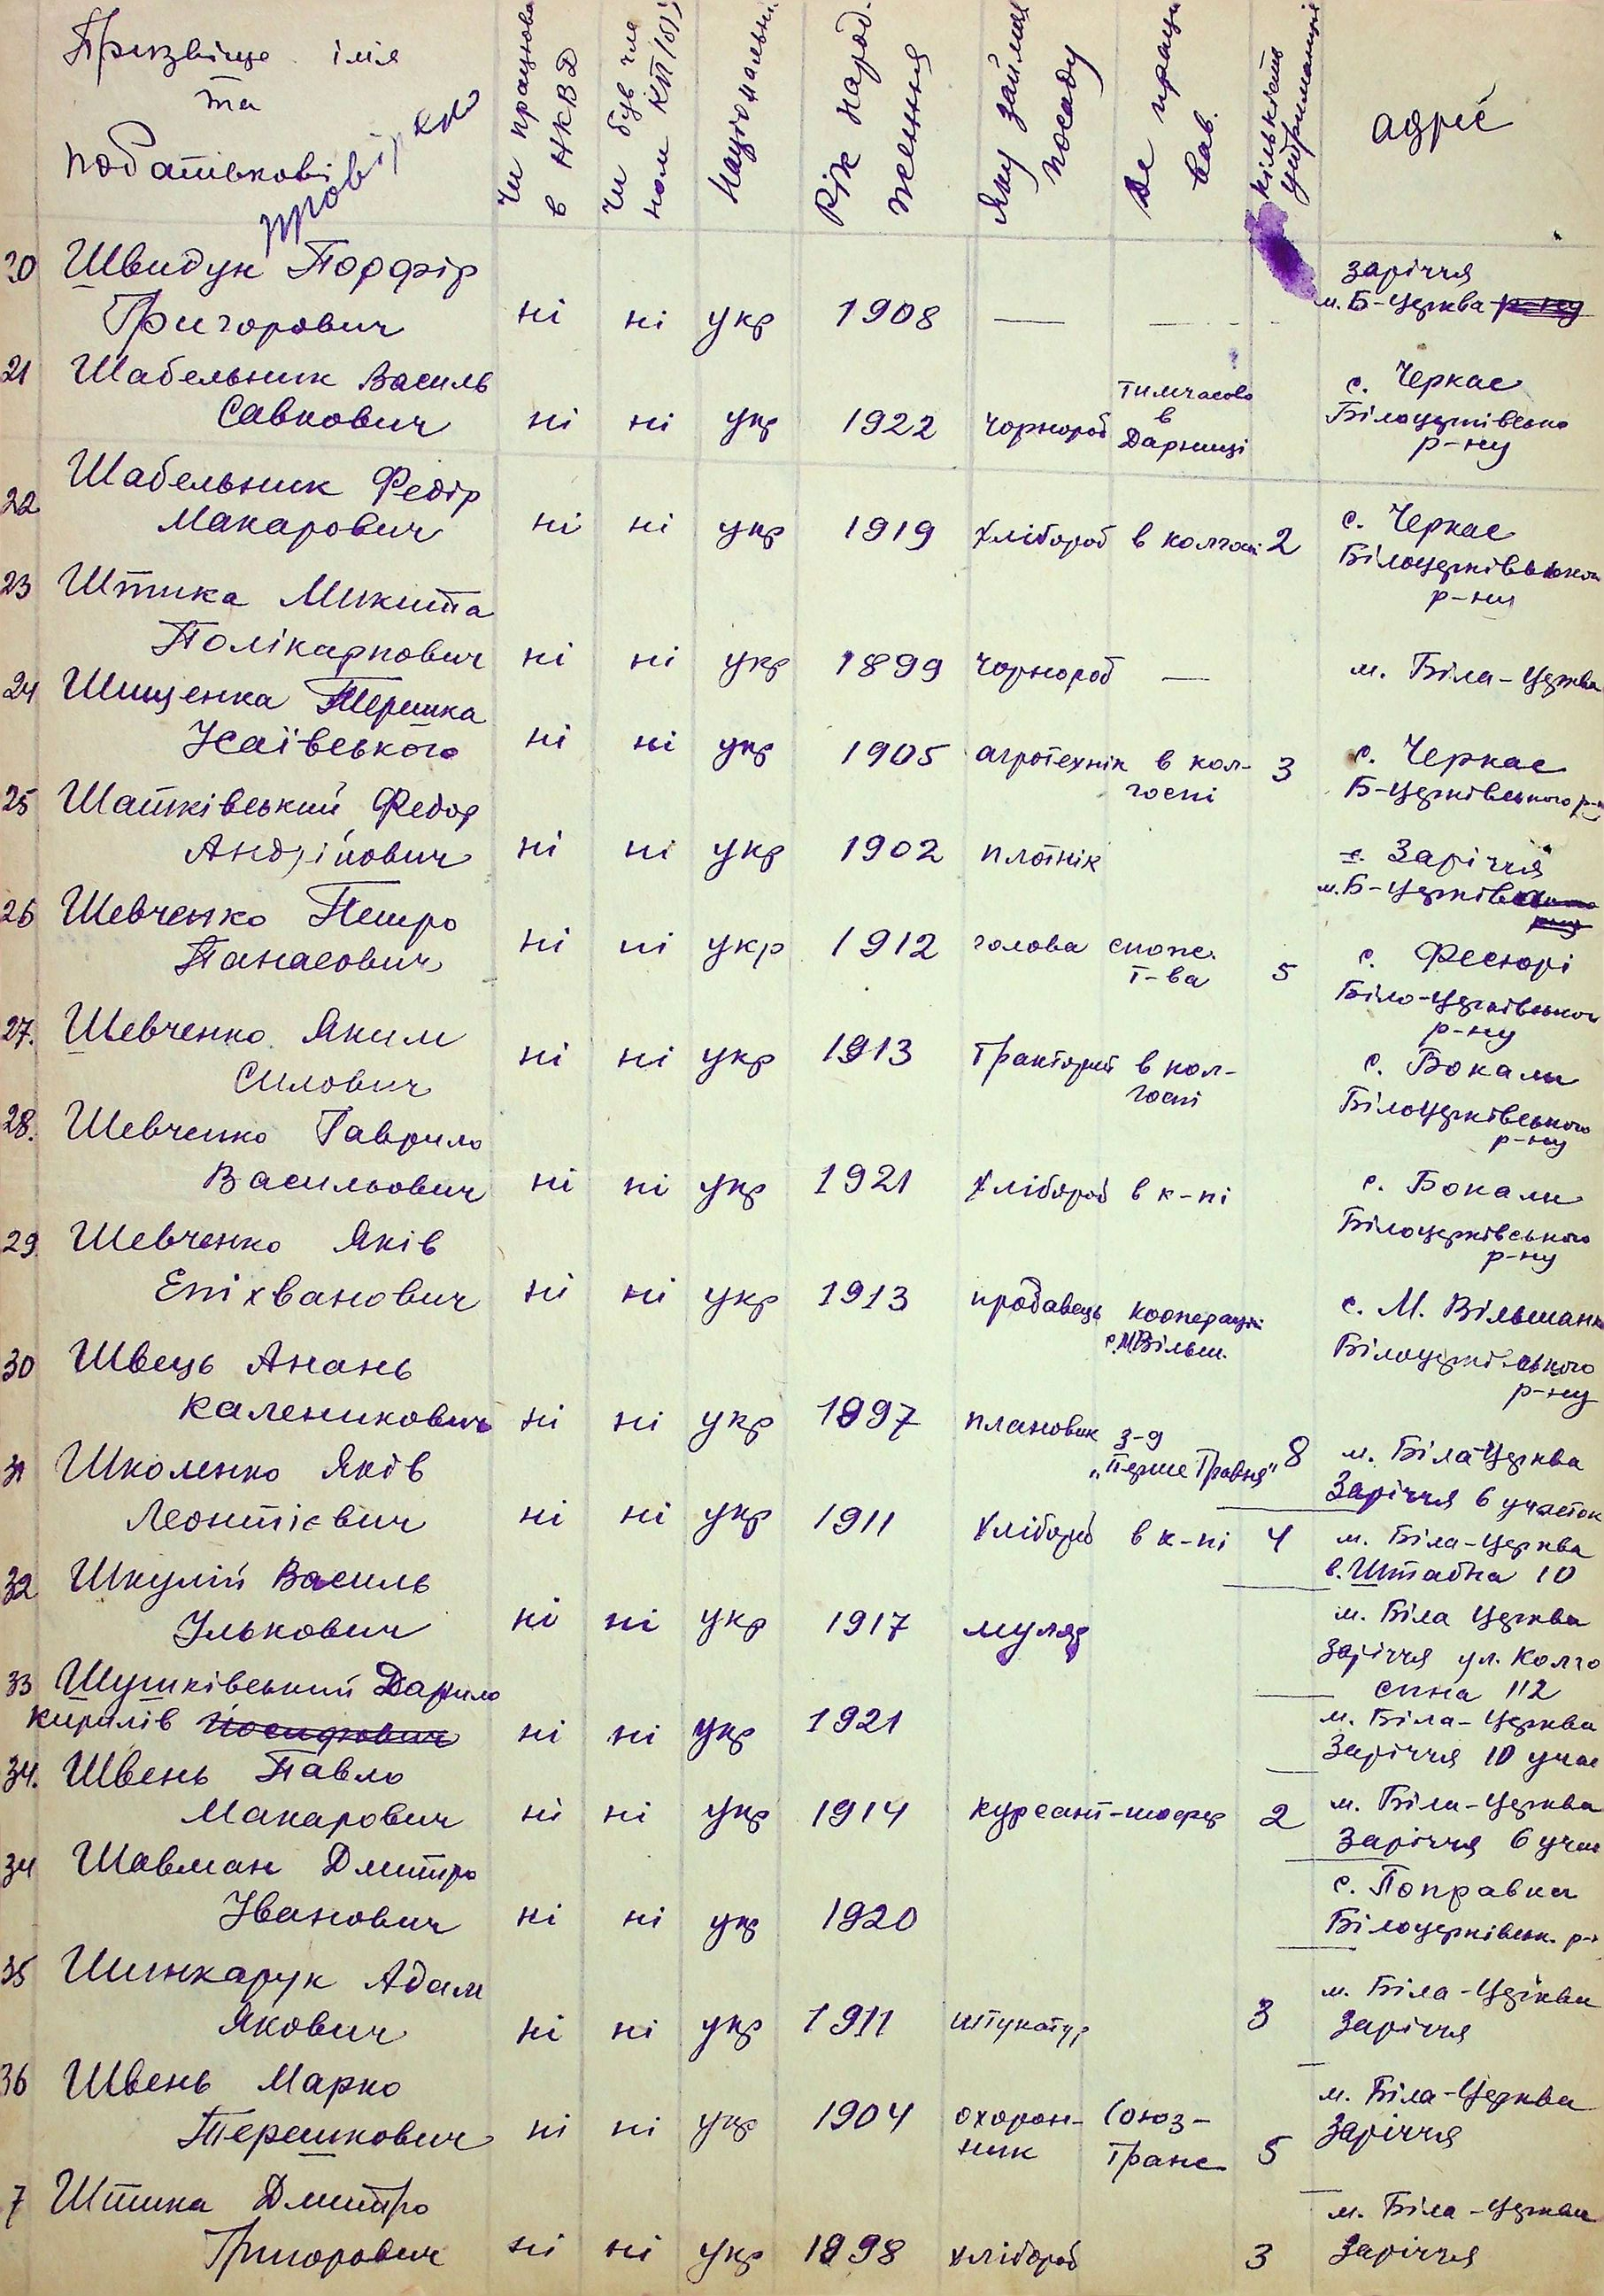 Прізвіще імя
та
податівкові
провірено
Чи працював
в НКВД
Чи був чле
ном КП/б/У
Національн
Рік народ-
женння
Яку займав
посаду
Де працю
вав.
кількість
утриманців
адрес
20 Швидун Порфір
Григорович ні ні укр 1908 — —
Заріччя
м. Б-Церква
21 Шабельник Василь
Савкович ні ні укр 1922 чорнороб
тимчасово
в
Дарниці
с. Черкас
Білоцерківсько
р-ну
22 Шабельник Федір
Макарович ні ні укр 1919 хлібороб в колгосп 2
с. Черкас
Білоцерківського
р-ну
23 Штика Микита
Полікарпович ні ні укр 1899 чорнороб — м. Біла-Церква
24 Шищенка Терешка
Ісаївського ні ні укр 1905 агротехнік в кол-
госпі 3
с. Черкас
Б-Церківського р-н
25 Шатківський Федор
Андрійович ні ні укр 1902 плотнік
с. Заріччя
м. Б-Церків
26 Шевченко Петро
Панасович ні ні укр 1912 голова спож.
т-ва 5
с. Фесюрі
Біло-Церківського
р-ну
27. Шевченко Яким
Силович ні ні укр 1913 тракторист в кол-
госпі
с. Бокали
Білоцерківського
р-ну
28. Шевченко Гаврило
Васильович ні ні укр 1921 хлібороб в к-пі
с. Бокали
Білоцерківського
р-ну
29 Шевченко Яків
Епіхванович ні ні укр 1913 продавець кооперації
с. М. Вільш.
с. М. Вільшанка
Білоцерківського
р-ну
30 Швець Анань
Каленикович ні ні укр 1897 плановик з-д
„Перше Травня" 8
м. Біла Церква
Заріччя 6 участок
31 Школенко Яків
Леонтієвич ні ні укр 1911 хлібороб в к-пі 4
м. Біла-Церква
в. Штабна 10
32 Шкулій Василь
Ількович ні ні укр 1917 муляр
м. Біла Церква
Заріччя ул. Колго
спна 112
33 Шушківський Данило
Кирилів Йосипович ні ні укр 1921
м. Біла-Церква
Заріччя 10 учас
34. Швень Павло
Макарович ні ні укр 1914 курсант-шофер 2
м. Біла-Церква
Заріччя 6 учас
34 Шавман Дмитро
Іванович ні ні укр 1920
с. Поправка
Білоцерківськ. р-
35 Шинкарук Адам
Якович ні ні укр 1911 штукатур 3
м. Біла-Церква
Заріччя
36 Швень Марко
Терешкович ні ні укр 1904 охорон-
ник
Союз-
транс 5
м. Біла-Церква
Заріччя
7 Штика Дмитро
Григорович ні ні укр 1898 хлібороб 3
м. Біла-Церква
Заріччя